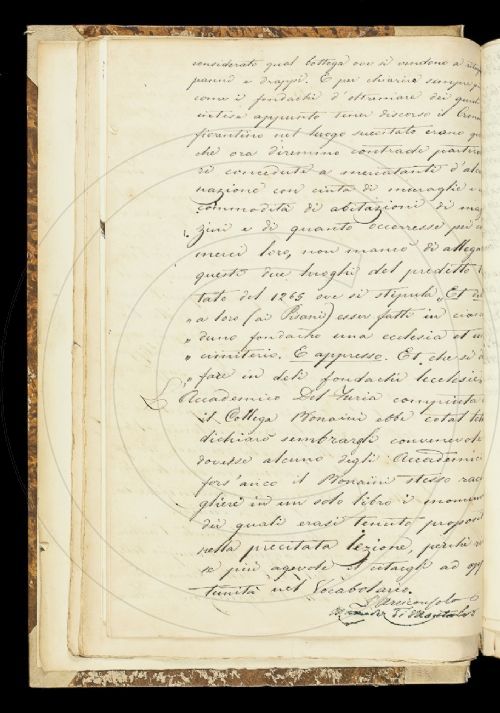 considerato qual bottega ove si vendono a ritag
panni e drappi. E per chiarire sempre più
come i fondachi d'oltremare dei quali
intese appunto tener discorso il Cron
fiorentino nel luogo succitato erano qu
che ora diremmo contrade partico
ri concedute a mercatanti d'alc
nazione con cinta di muraglie e
commodità di abitazioni di mag
zini e di quanto occorresse pei
merci loro, non mancò di allega
questi due luoghi del predetto
tato del 1265 ove si stipula „Et de
„ a loro (ai Pisani) esser fatti in cias
„ duno fondacho una ecclesia et u
„ cimiterio. E appresso. Et che si d
„ fare in deti fondachi ecclesie
L'Accademico Del Furia compiuta
il Collega Bonaini ebbe cotal
dichiarò sembrargli convenevole
dovesse alcuno degli Accademici
fors'anco il Bonaini stesso rac
gliere in un solo libro i monum
dei quali erasi tenuto proposi
nella precitata lezione, perchè
se più agevole il citargli ad op
tunità nel Vocabolario.
L'Arciconsolo